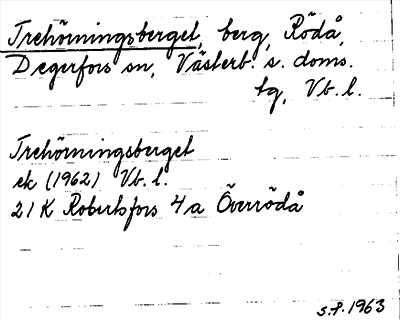 Trehörningsberget, berg, Rödå,
Degerfors sn, Västerb. s. doms.
tg, Vb. l.
Trehörningsberget
ek (1962) Vb. l.
21 K Robertsfors 4a Överrödå
S.P. 1963